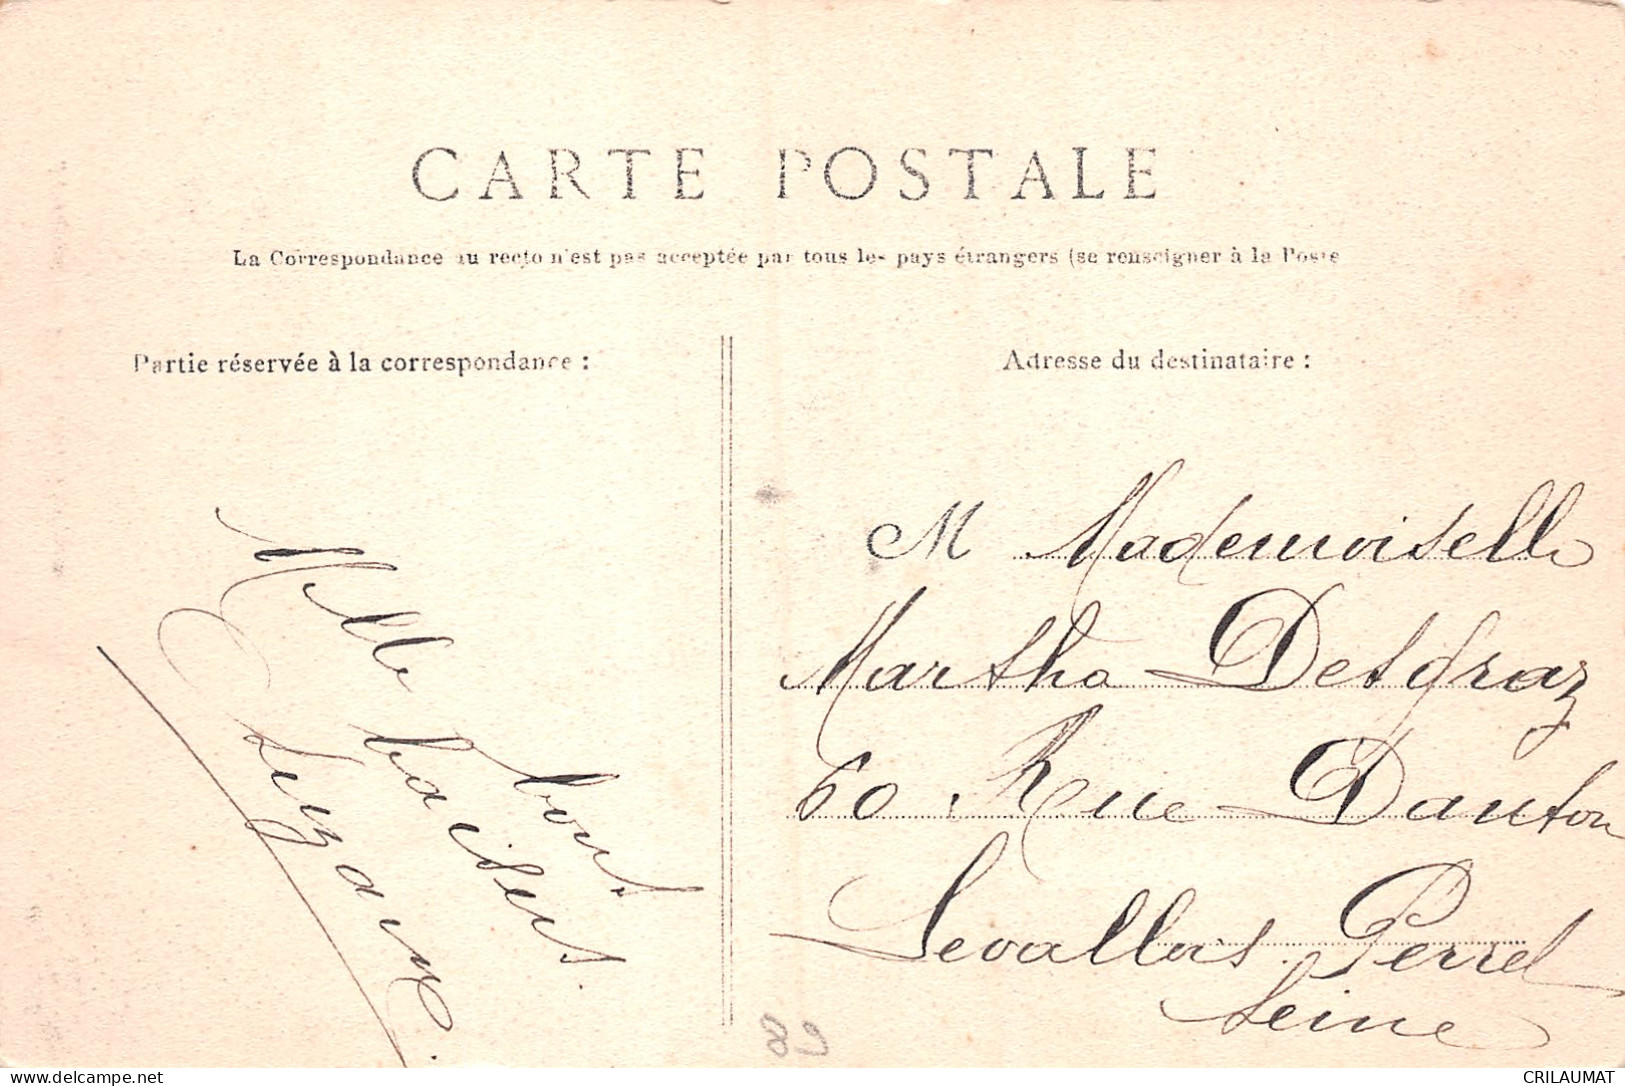 CARTE POSTALE
La Correspondance au recto n'est pas acceptée par tous les pays étrangers (se renseigner à la Poste
Partie réservée à la correspondance :
Mille bons
baisers.
Suzanne.
Adresse du destinataire :
M Mademoiselle
Marthe Desgraz
60 Rue Danton
Levallois Perret
Seine
89
www.delcampe.net
CRILAUMAT